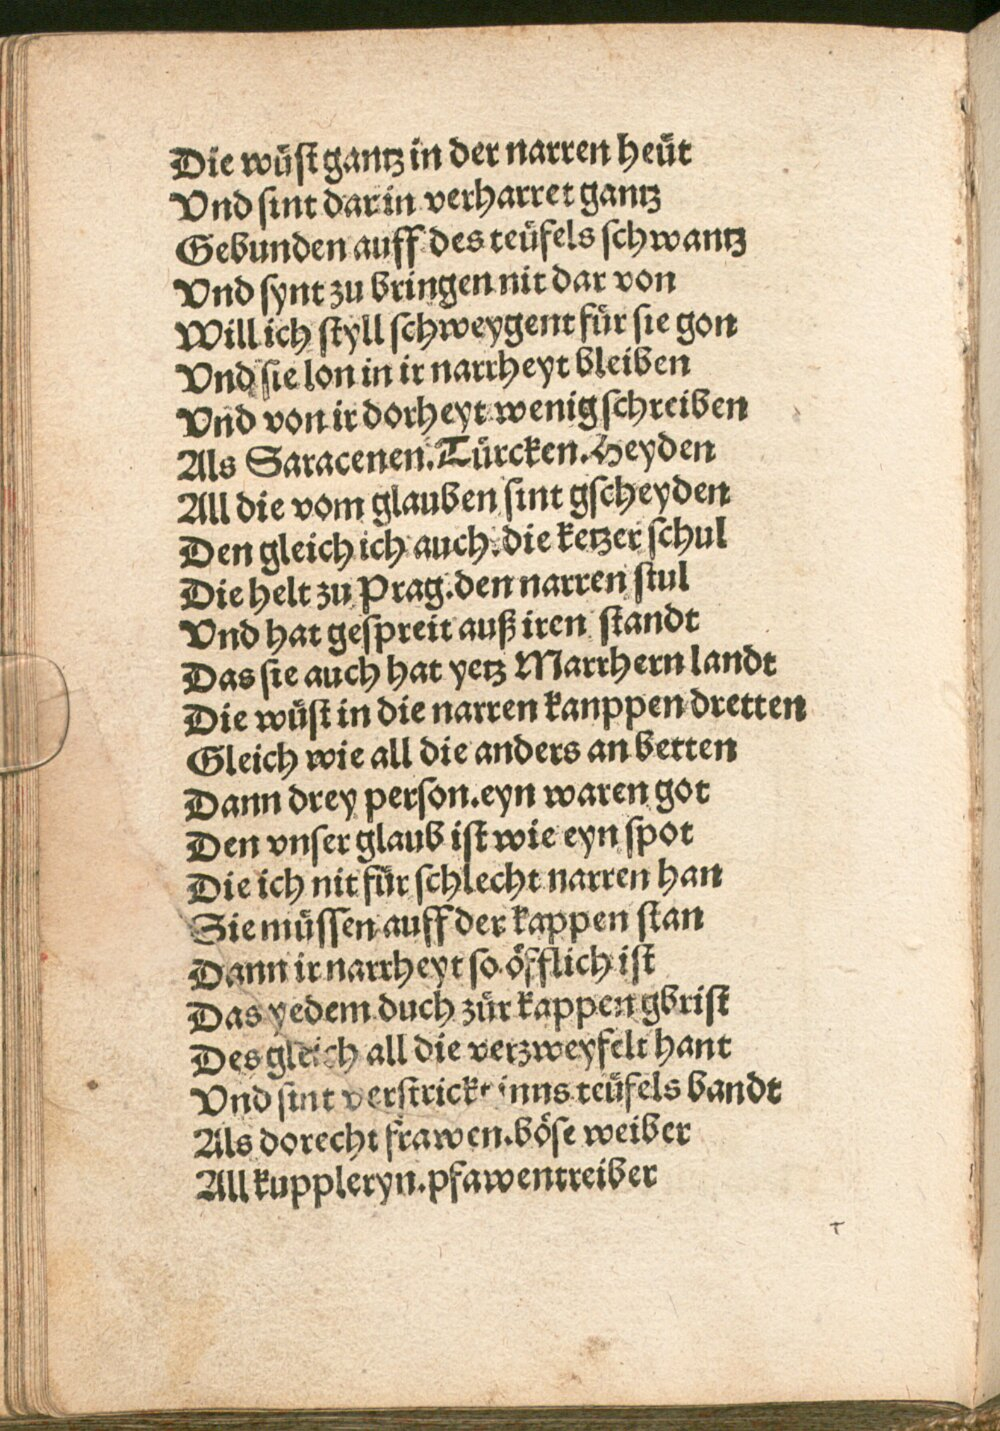 Die wüst gantz in der narren heüt
Vnd sint dar in verharret gantz
Gebunden auff des teüfels schwantz
Vnd synt zu bringen nit dar von
Will ich styll schweygent für sie gon
Vnd sie lon in ir narrheyt bleiben
Vnd von ir dorheyt wenig schreiben
Als Saracenen. Türcken. Heyden
All die vom glauben sint gscheyden
Den gleich ich auch. die ketzer schul
Die helt zu Prag. den narren stul
Vnd hat gespreit auß iren standt
Das sie auch hat yetz Marrhern landt
Die wüst in die narren kanppen dretten
Gleich wie all die anders an betten
Dann drey person. eyn waren got
Den vnser glaub ist wie eyn spot
Die ich nit für schlecht narren han
Sie müssen auff der kappen stan
Dann ir narrheyt so öfflich ist
Das yedem duch zür kappen gbrist
Des gleich all die verzweyfelt hant
Vnd sint verstrickt inns teüfels bandt
Als dorecht frawen. böse weiber
All kuppleryn. pfawentreiber